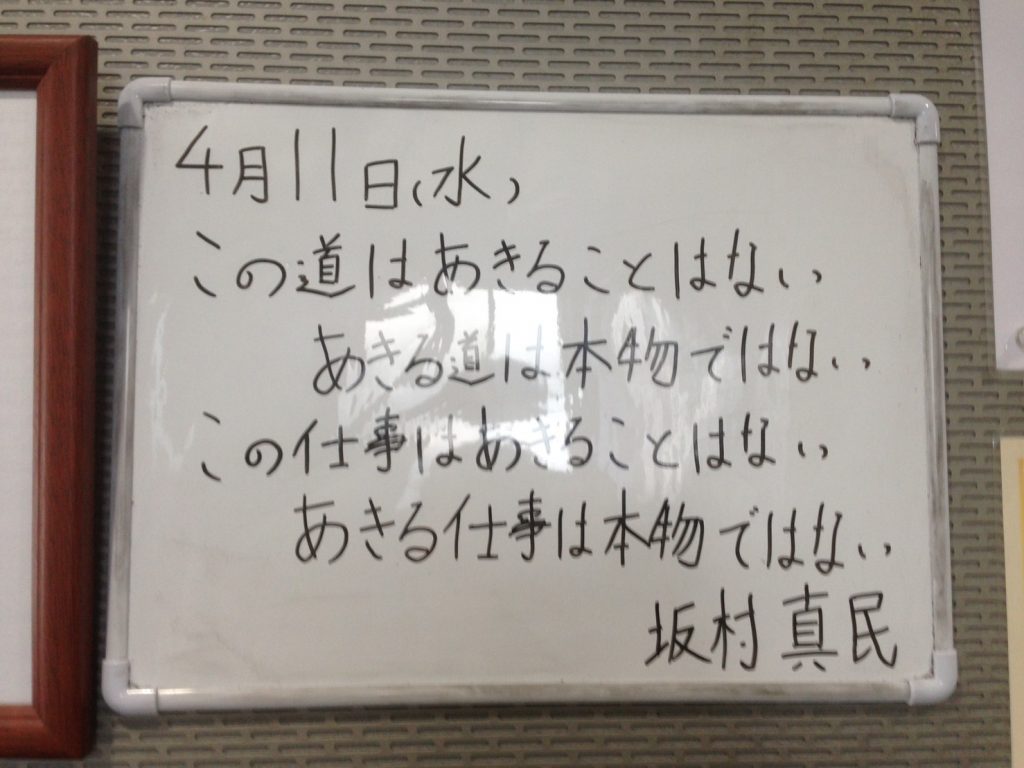 4月11日(水)
この道はあきることはない
あきる道は本物ではない
この仕事はあきることはない
あきる仕事は本物ではない
坂村真民